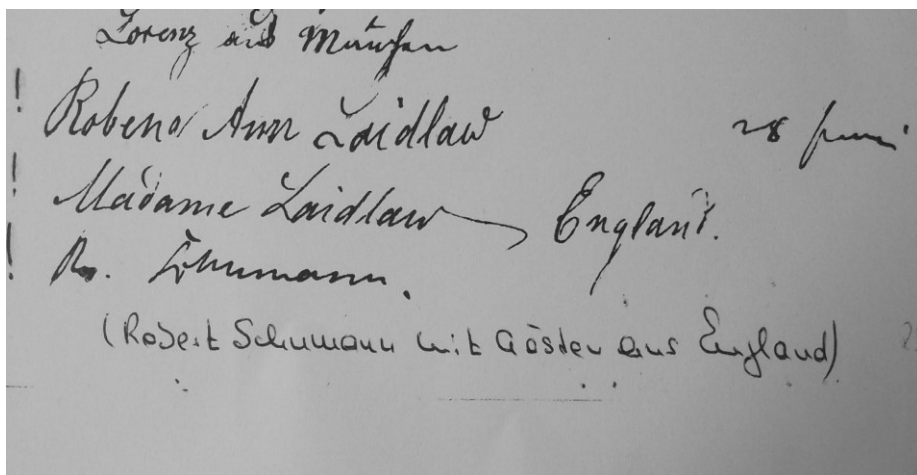 Lorenz aus München
! Robena Ann Laidlaw 28 Juni
! Madame Laidlaw England.
! R. Schumann.
(Robert Schumann mit Gästen aus England)